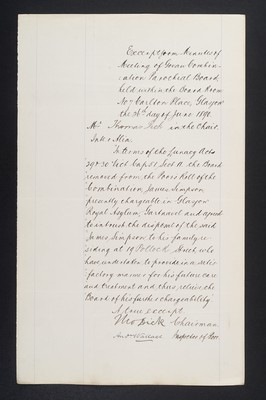 Excerpt from Minutes of
Meeting of Govan Combin-
-ation Parochial Board
held within the Board Room
No 7 Carlton Place, Glasgow
the day of June
Mr. Thomas Dick in the Chair
Inter Alia.
In terms of the Lunacy Acts
29 & 30 Vict Cap 51, Sect 11 the Board
removed from the Poor's Roll of the
Combination, James Simpson
presently chargeable in Glasgow
Royal Asylum, Gartnavel and agreed
to intrust the disposal of the said
James Simpson to his family re-
siding at 19 Pollock Street who
have undertaken to provide in a satis-
factory manner for his future care
and treatment and thus relieve the
Board of his further chargeability
A true excerpt
Thos Dick Chairman
Inspector of Poor